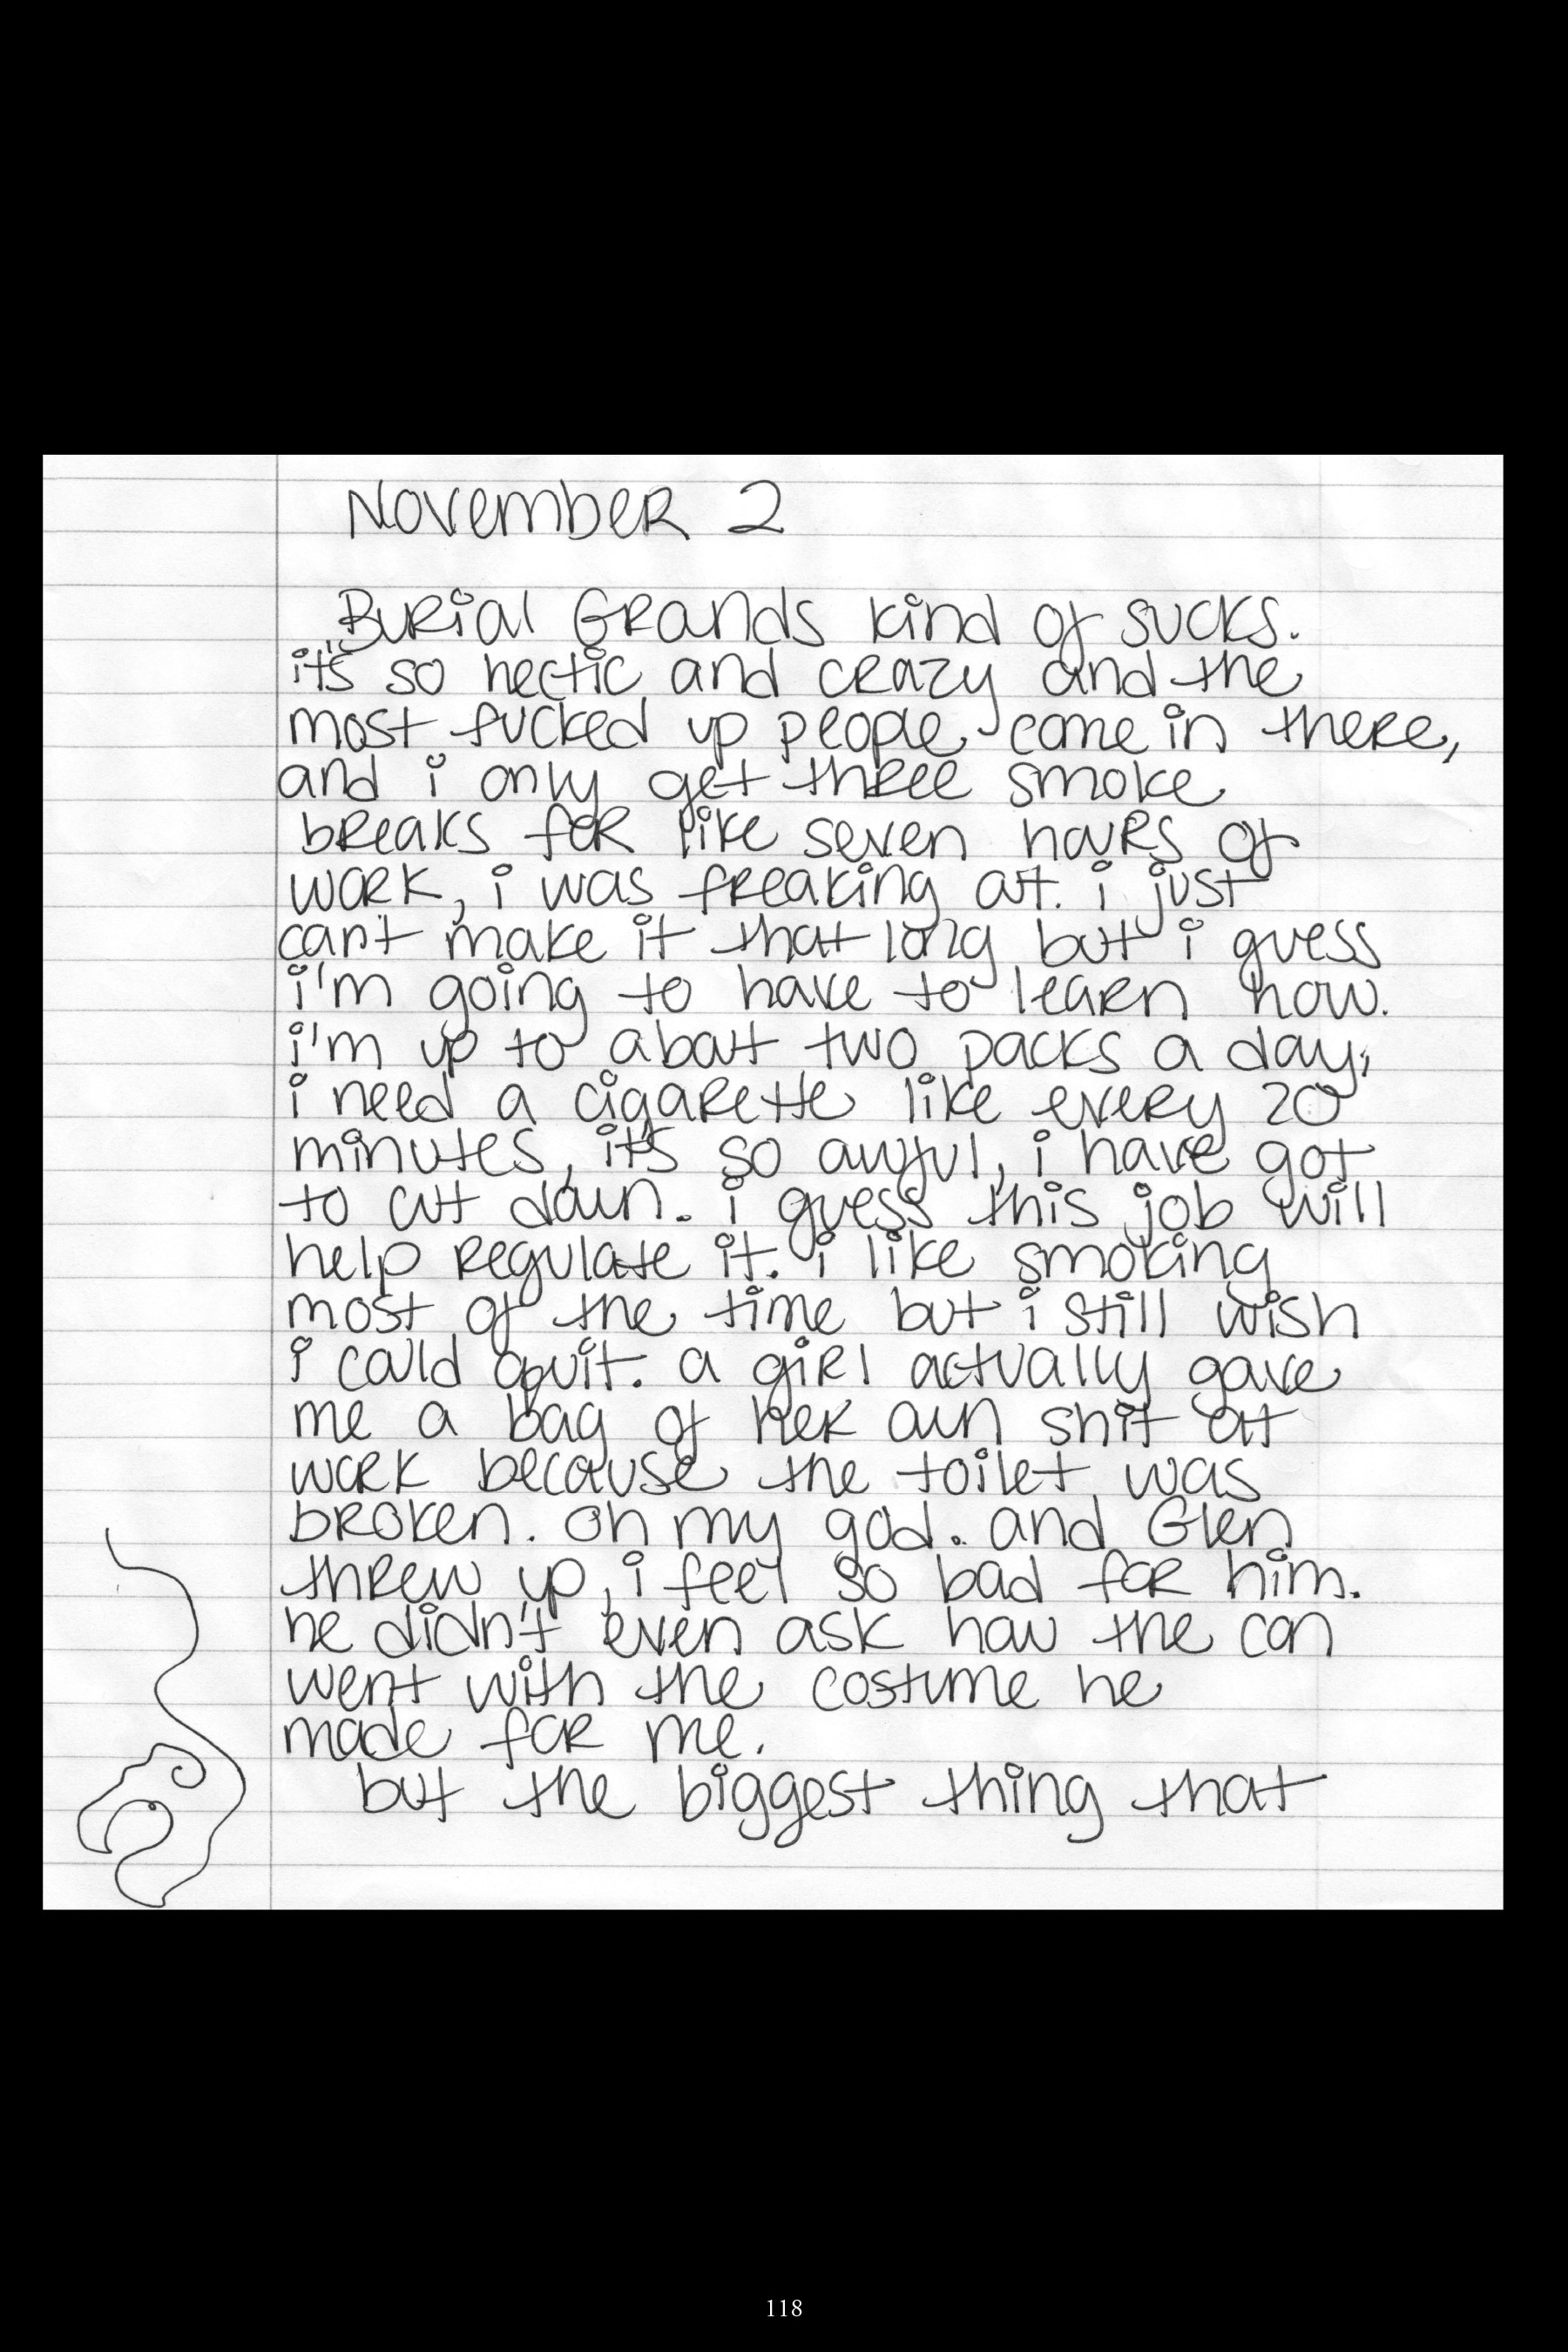 November 2
Burial Grounds kind of sucks.
it's so hectic and crazy and the
most fucked up people come in there,
and i only get three smoke
breaks for like seven hours of
work, i was freaking out. i just
can't make it that long but i guess
i'm going to have to learn how.
i'm up to about two packs a day,
i need a cigarette like every 20
minutes, it's so awful, i have got
to cut down. i guess this job will
help regulate it. i like smoking
most of the time but i still wish
i could quit. a girl actually gave
me a bag of her own shit at
work because the toilet was
broken. oh my god. and Glen
threw up, i feel so bad for him.
he didn't even ask how the con
went with the costume he
made for me.
but the biggest thing that
118